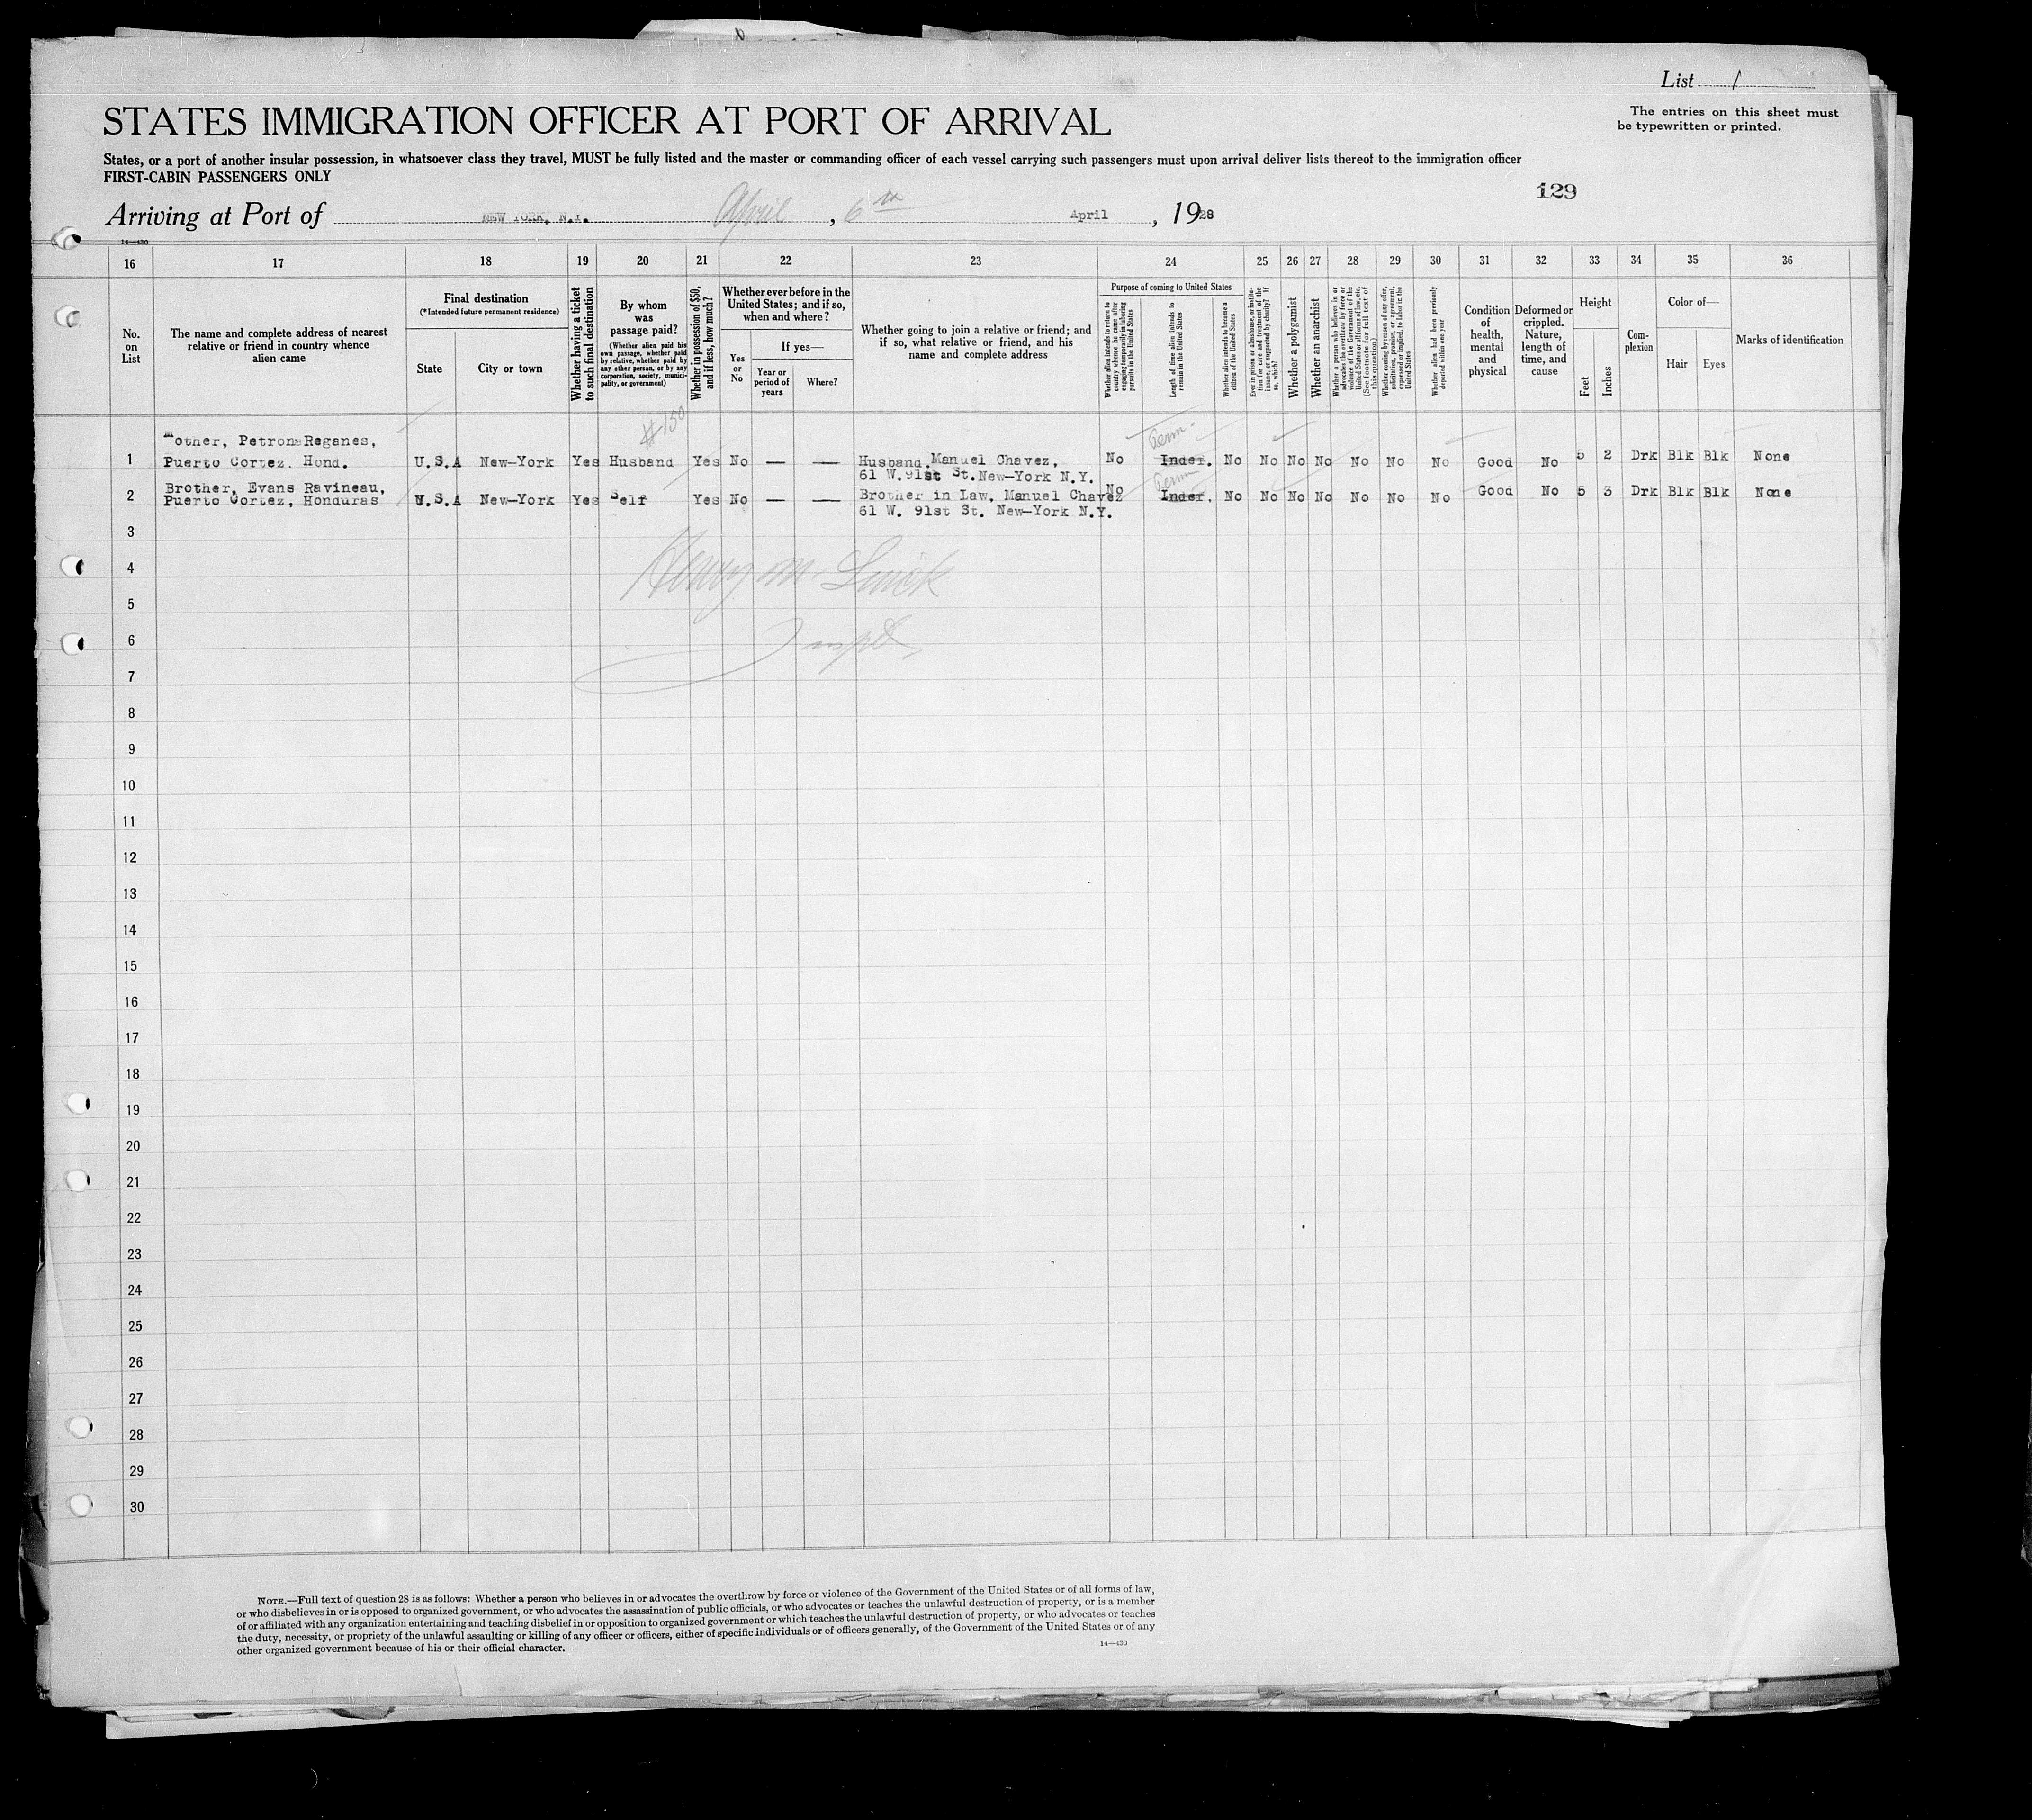 List 1
The entries on this sheet must
be typewritten or printed.
STATES IMMIGRATION OFFICER AT PORT OF ARRIVAL
States, or a port of another insular possession, in whatsoever class they travel, MUST be fully listed and the master or commanding officer of each vessel carrying such passengers must upon arrival deliver lists thereof to the immigration officer
FIRST-CABIN PASSENGERS ONLY
129
Arriving at Port of NEW YORK, N.Y. April, 6th April, 1928
14—430
16 17 18 19 20 21 22 23 24 25 26 27 28 29 30 31 32 33 34 35 36
No. on List
The name and complete address of nearest
relative or friend in country whence
alien came
Final destination
(*Intended future permanent residence)
State
City or town
Whether having a ticket
to such final destination
By whom
was
passage paid?
(Whether alien paid his
own passage, whether paid
by relative, whether paid by
any other person, or by any
corporation, society, munici-
pality, or government)
Whether in possession of $50,
and if less, how much?
Whether ever before in the
United States; and if so,
when and where?
Yes
or
No
If yes—
Year or
period of
years
Where?
Whether going to join a relative or friend; and
if so, what relative or friend, and his
name and complete address
Purpose of coming to United States
Whether alien intends to return to
country whence he came after
engaging temporarily in laboring
pursuits in the United States
Length of time alien intends to
remain in the United States
Whether alien intends to become a
citizen of the United States
Ever in prison or almshouse, or institu-
tion for care and treatment of the
insane, or supported by charity? If
so, which?
Whether a polygamist
Whether an anarchist
Whether a person who believes in or
advocates the overthrow by force or
violence of the Government of the
United States or all forms of law, etc.
(See footnote for full text of
this question)
Whether coming by reason of any offer,
solicitation, promise, or agreement,
expressed or implied, to labor in the
United States
Whether alien had been previously
deported within one year
Condition
of
health,
mental
and
physical
Deformed or
crippled.
Nature,
length of
time, and
cause
Height
Feet
Inches
Com-
plexion
Color of—
Hair
Eyes
Marks of identification
#150
Perm.
Mother, Petrona Reganes,
1 Puerto Cortez. Hond. U.S.A New-York Yes Husband Yes No — — Husband, Manuel Chavez, No Indef. No No No No No No No Good No 5 2 Drk Blk Blk None
61 W. 91st St. New-York N.Y.
Perm
Brother, Evans Ravineau,
2 Puerto Cortez, Honduras U.S.A New-York Yes Self Yes No — — Brother in Law, Manuel Chavez No Indef. No No No No No No No Good No 5 3 Drk Blk Blk None
61 W. 91st St. New-York N.Y.
3
Henry M.
4
5
6
Inspt
7
8
9
10
11
12
13
14
15
16
17
18
19
20
21
22
23
24
25
26
27
28
29
30
NOTE.—Full text of question 28 is as follows: Whether a person who believes in or advocates the overthrow by force or violence of the Government of the United States or of all forms of law,
or who disbelieves in or is opposed to organized government, or who advocates the assassination of public officials, or who advocates or teaches the unlawful destruction of property, or is a member
of or affiliated with any organization entertaining and teaching disbelief in or opposition to organized government or which teaches the unlawful destruction of property, or who advocates or teaches
the duty, necessity, or propriety of the unlawful assaulting or killing of any officer or officers, either of specific individuals or of officers generally, of the Government of the United States or of any
other organized government because of his or their official character.
14—430